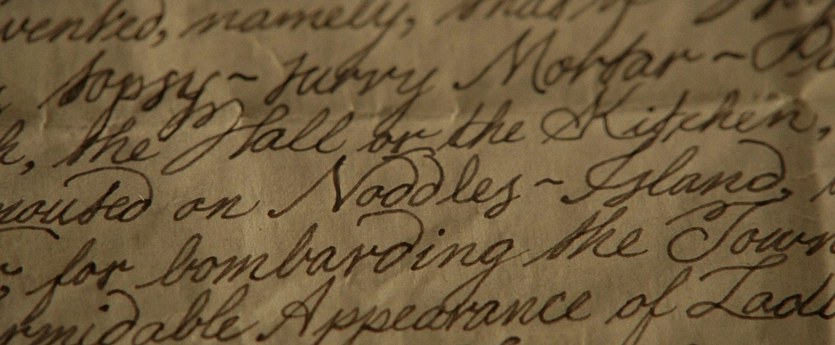 vented, namely, that of
topsy-turvy Mortar-
k, the Hall or the Kitchen,
moused on Noddles-Island,
for bombarding the Town
ormidable Appearance of Ladi